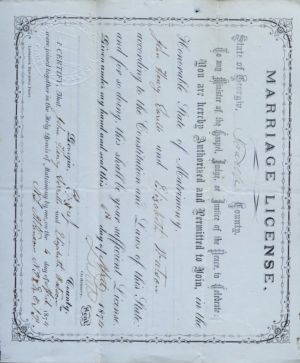 MARRIAGE LICENSE.
State of Georgia, County.
To any Minister of the Gospel, Judge, or Justice of the Peace, to Celebrate:
You are hereby Authorized and Permitted to Join, in the
Honorable State of Matrimony,
John Henry and Elizabeth Wilson
according to the Constitution and Laws of this State:
and for so doing, this shall be your sufficient License.
Given under my hand and seal this day of 1874
Ordinary.
Georgia, County.
I CERTIFY, That John Henry and Elizabeth Wilson
were joined together in the Holy Bonds of Matrimony by me, on the 4 day of 1874